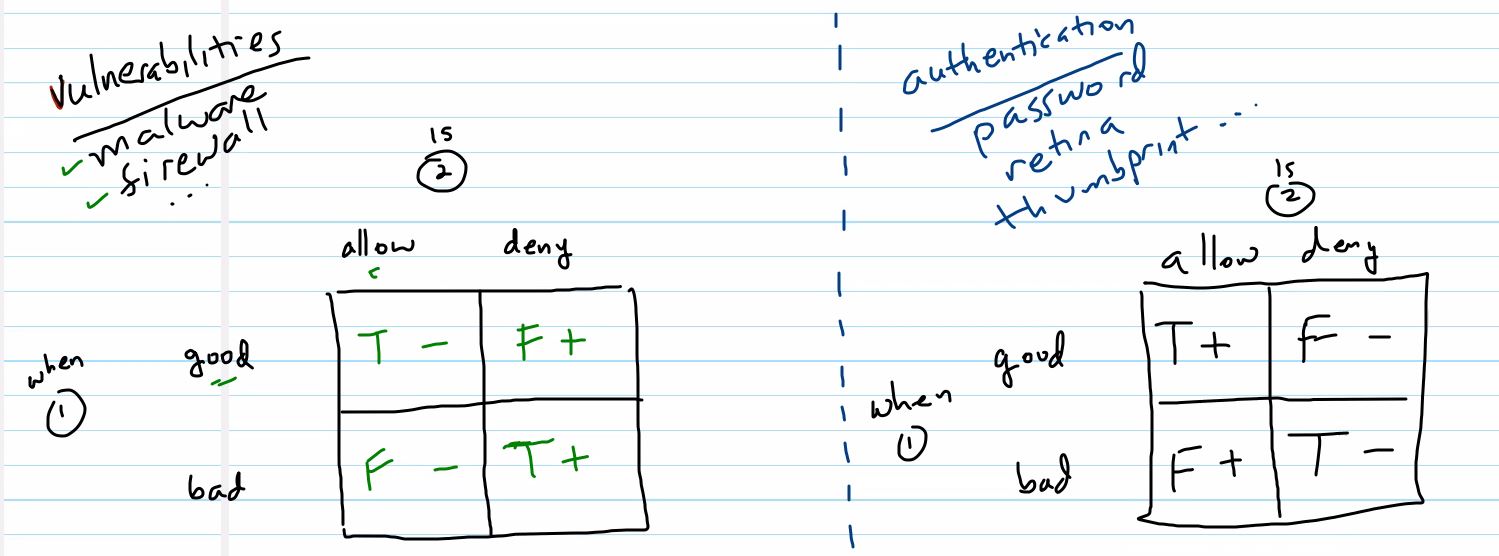 vulnerabilities
malware
firewall
...
is
2
allow deny
when
1
good T - F +
bad F - T +
authentication
password
retina
thumbprint ...
is
2
allow deny
when
1
good T + F -
bad F + T -